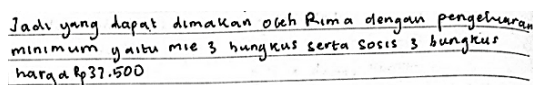 Jadi yang dapat dimakan oleh Rima dengan pengeluaran
minimum yaitu mie 3 bungkus serta sosis 3 bungkus
harga Rp37.500